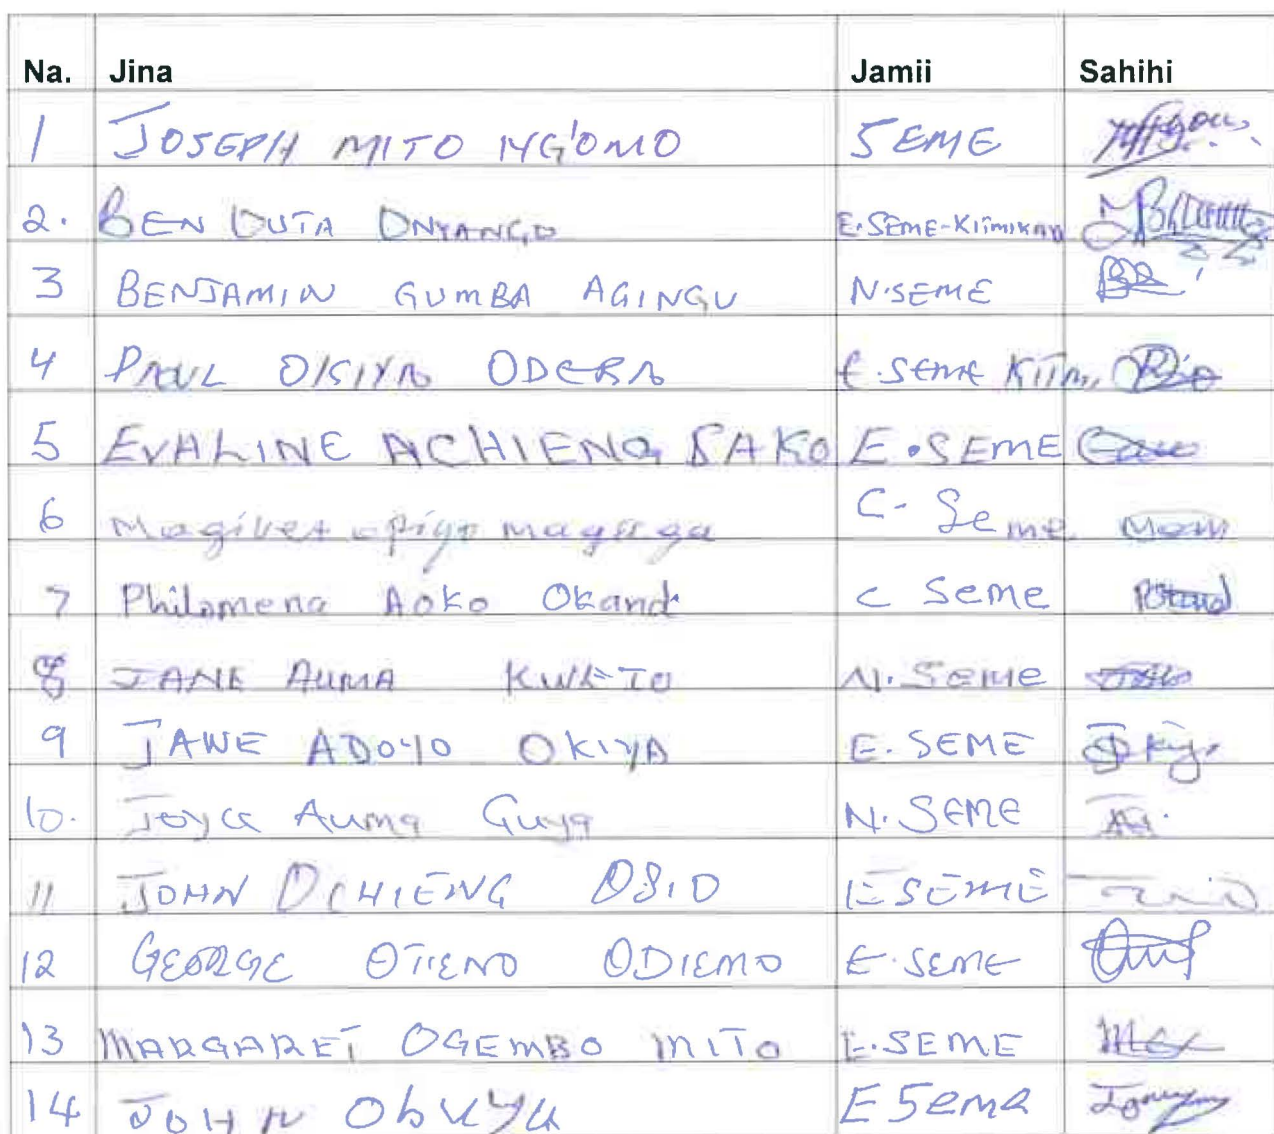 Na. Jina Jamii Sahihi
1 JOSEPH MITO NG'OMO SEME
2. BEN OUTA ONYANGO E.SEME-KIIMIKAN
3 BENJAMIN GUMBA AGINGU N.SEME
4 PAUL OKIYA ODERA E.SEME KIIM.
5 EVALINE ACHIENG SAKO E.SEME
6 magiga C- Seme
7 Philomena Aoko Okand C Seme
8 JANE AUMA N.Seme
9 JANE ADOYO OKIYA E.SEME
10. Joyce Auma Guya N.SEME
11 JOHN OCHIENG OSIO E SEME
12 GEORGE OTIENO ODIEMO E.SEME
13 MARGARET OGEMBO MITO E.SEME
14 JOHN Obuya E Sema